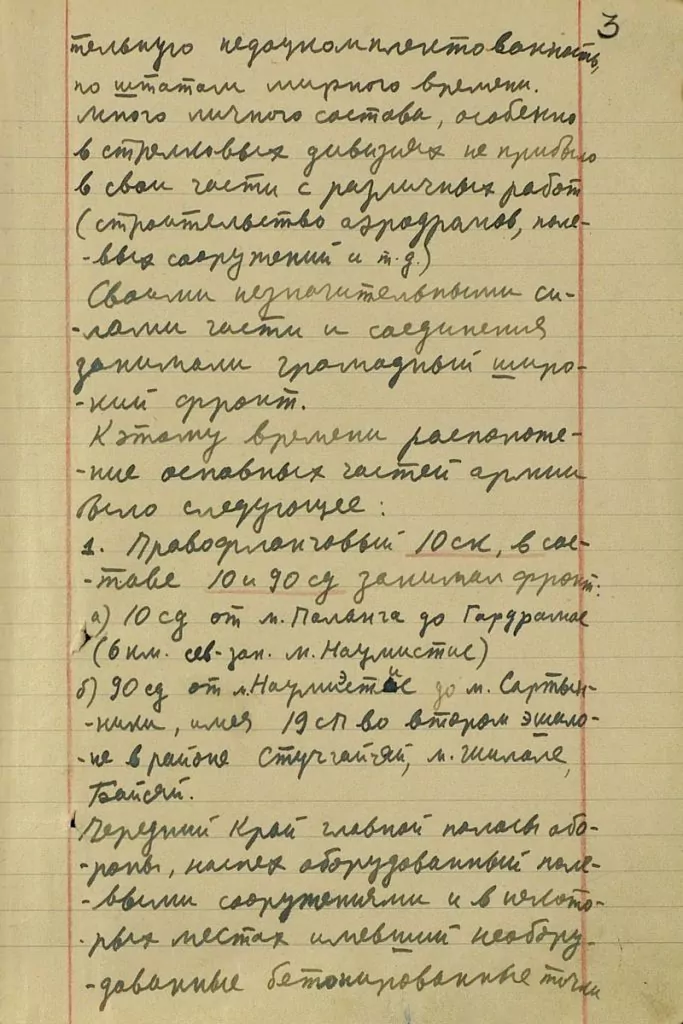 3
тельную недоукомплектованность,
по штатам мирного времени.
Много личного состава, особенно
в стрелковых дивизиях не прибыло
в свои части с различных работ
(строительство аэродромов, поле-
-вых сооружений и т.д.)
Своими незначительными си-
-лами части и соединения
занимали громадный широ-
-кий фронт.
К этому времени расположе-
-ние основных частей армии
было следующее:
1. Правофланговый 10 ск, в сос-
-таве 10 и 90 сд занимал фронт:
а) 10 сд от м. Паланга до Гардамас
(6 км. сев-зап. м. Наумистис)
б) 90 сд от м. до м. Сартын-
-ники, имея 19 сп во втором эшело-
-не в районе Стучгайчяй, м. Шилале,
Байсяй.
Передний край главной полосы обо-
-роны, наспех оборудованный поле-
-выми сооружениями и в некото-
-рых местах имевший необору-
-дованные бетонированные точки